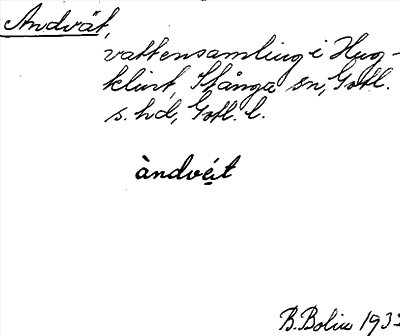 Andvät,
vattensamling i Hug-
klint, Stånga sn, Gotl.
s. hd, Gotl. l.
àndvét
B. Bolin 193